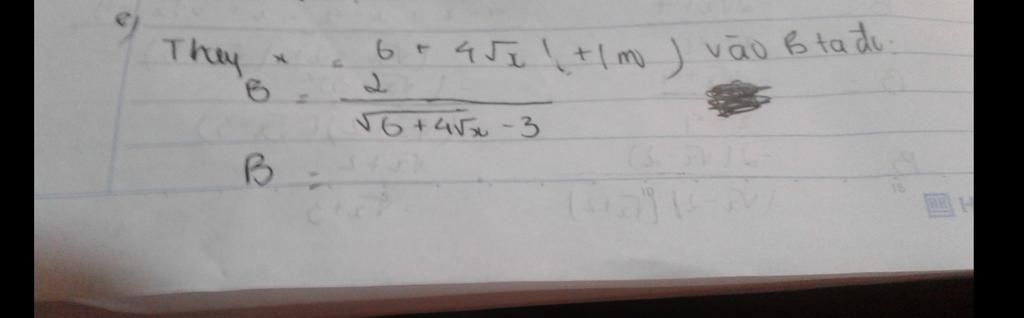 c)
Thay x = 6 + 4√x (+/m) vào B ta đc.
B = 2 / (√6+4√x - 3)
B =